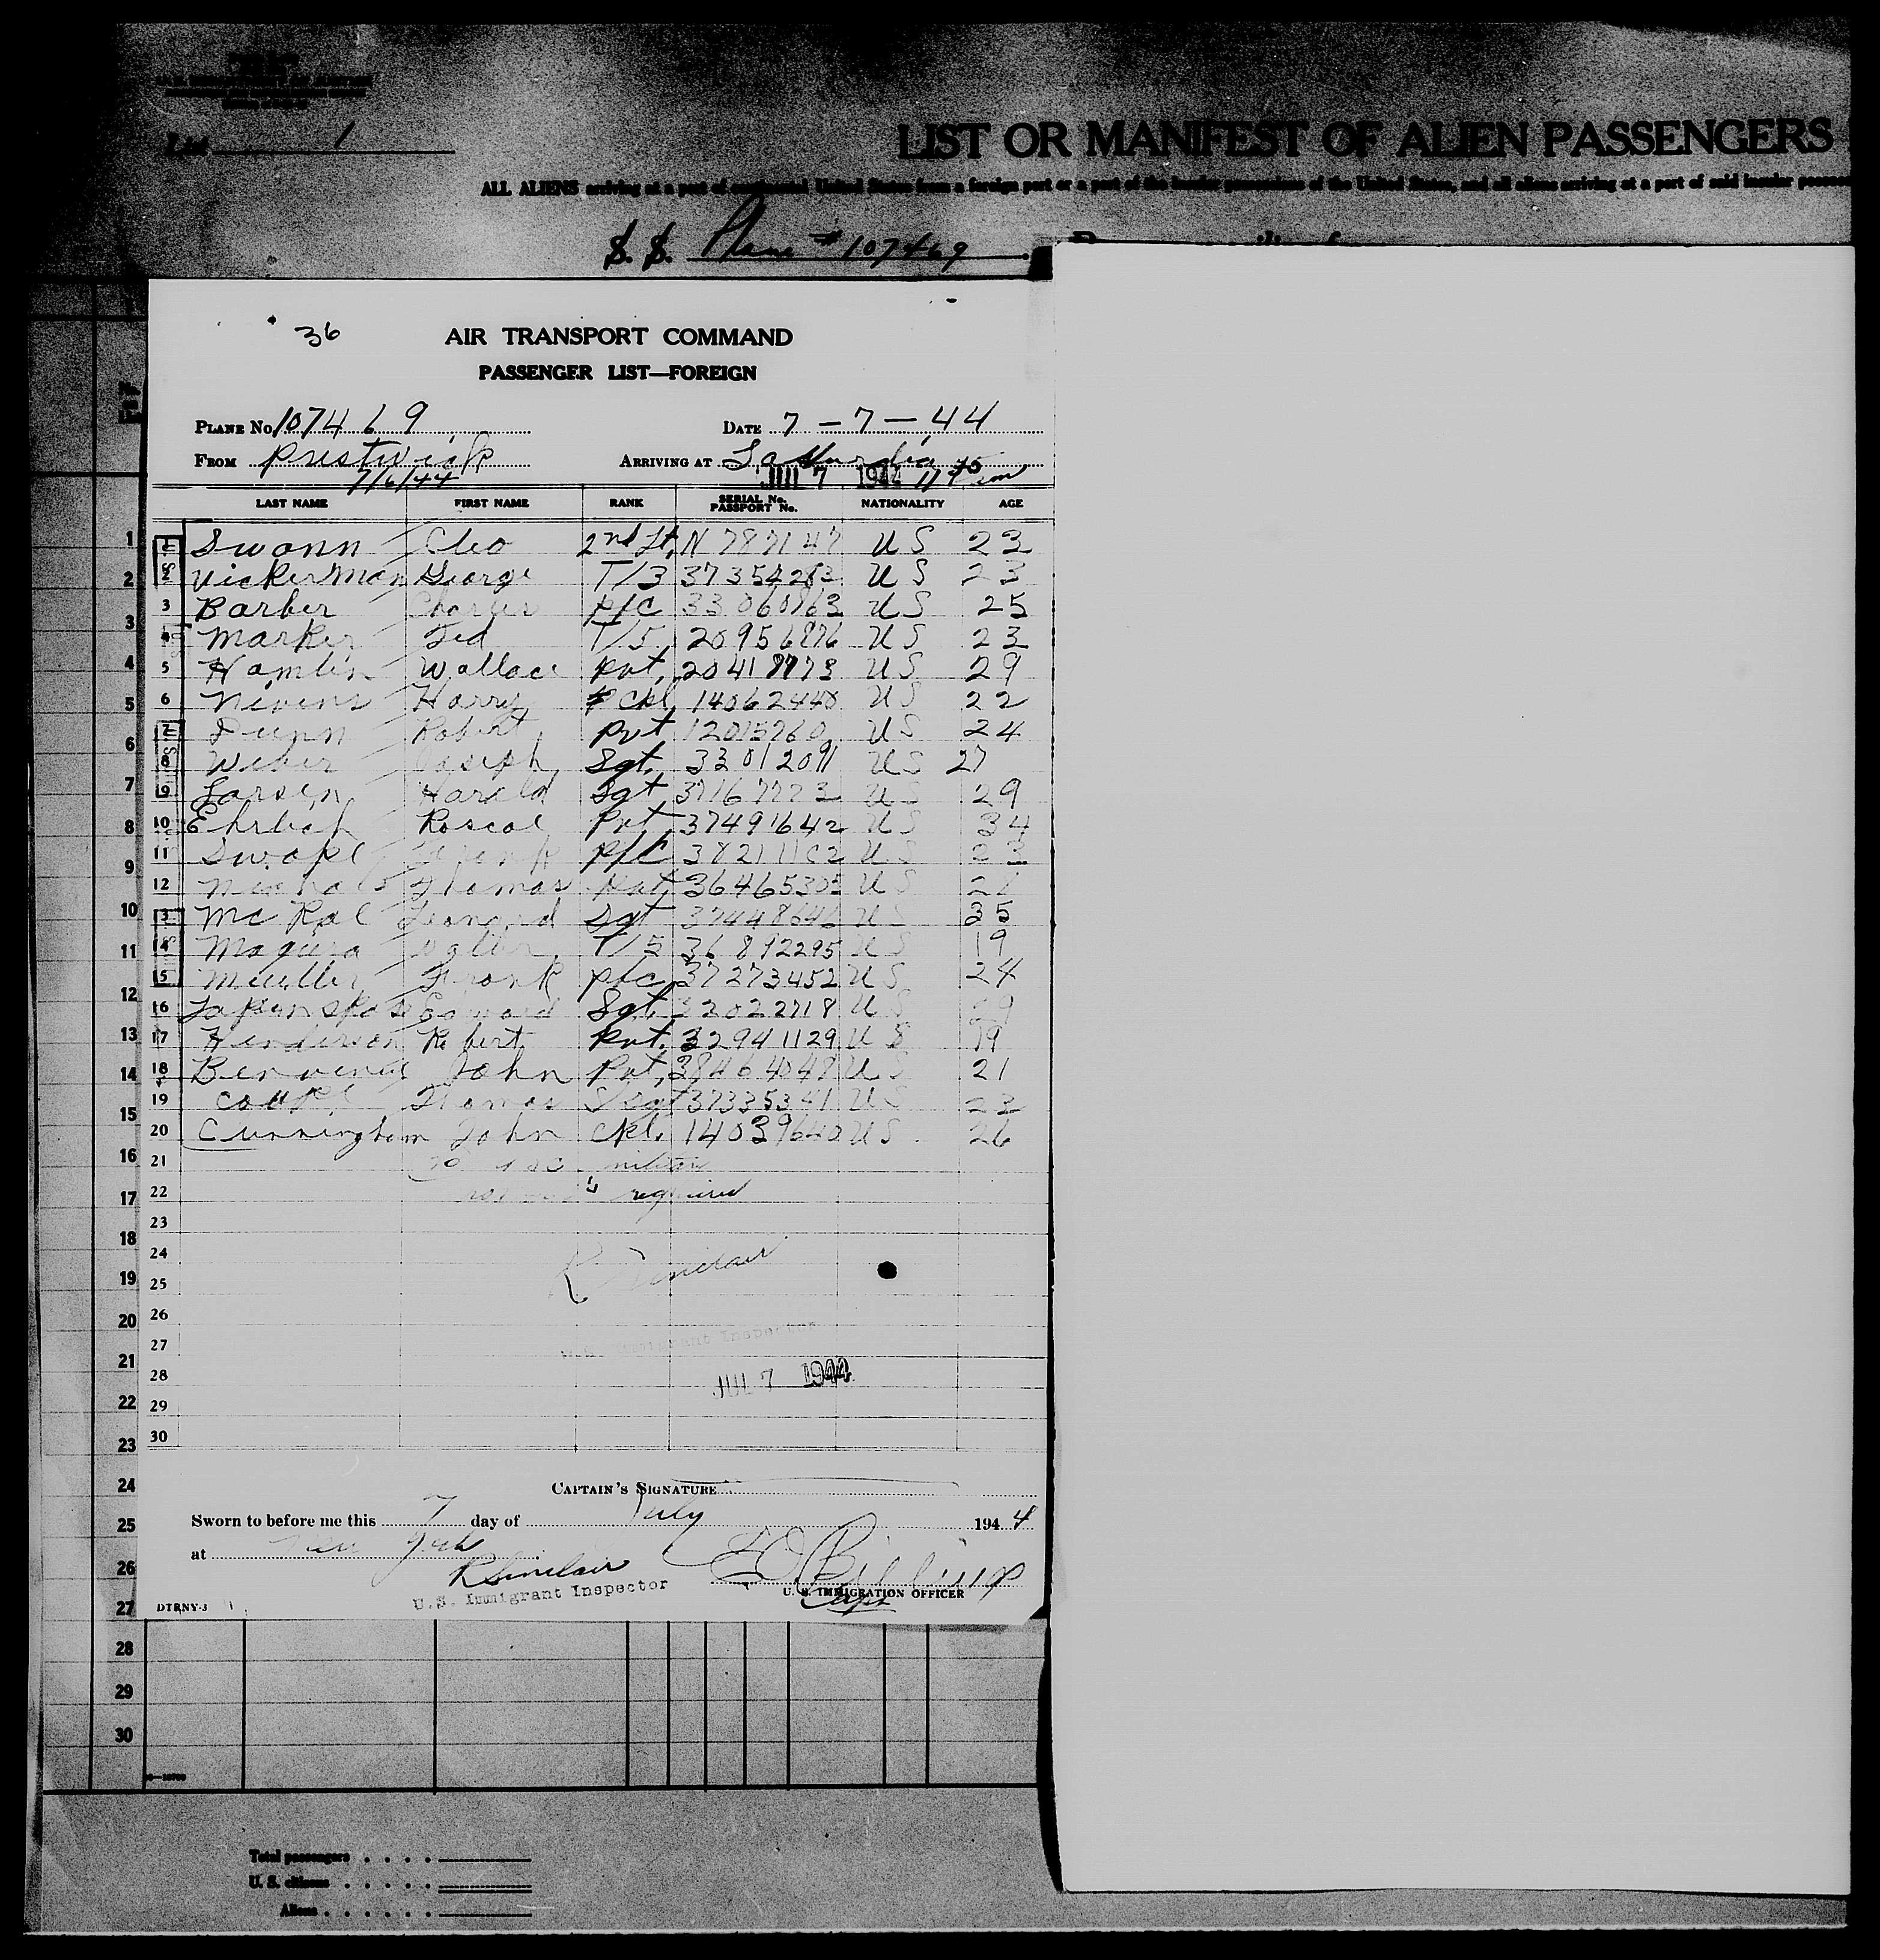 List 1
LIST OR MANIFEST OF ALIEN PASSENGERS
ALL ALIENS arriving at a port of continental United States from a foreign port or a port of the insular possessions of the United States, and all aliens arriving at a port of said insular
S. S. Plane # 107469
36
AIR TRANSPORT COMMAND
PASSENGER LIST—FOREIGN
PLANE No. 107469 DATE 7-7-44
FROM Prestwick ARRIVING AT LaGuardia
7/6/44 JUL 7 1944
LAST NAME FIRST NAME RANK SERIAL No. PASSPORT No. NATIONALITY AGE
1 Swann Cleo 2nd Lt. N 787147 US 23
2 Vickerman George T/3 37354283 US 23
3 Barber Charles Pfc 33060863 US 25
4 Marker Ted T/5 20956876 US 23
5 Hamlin Wallace Pvt. 20418773 US 29
6 Nivens Harry 14062440 US 22
7 Dunn Robert Pvt 12015760 US 24
8 Weber Joseph Sgt. 33012091 US 27
9 Larsen Harold Sgt 37167773 US 29
10 Ehrlich Roscoe Pvt 37491642 US 34
11 Swope Frank Pfc 38211102 US 23
12 Thomas Pvt. 36465305 US
13 Mc Rae Leonard Sgt US 35
14 Magura Walter T/5 36812295 US 19
15 Mueller Frank Pfc 37273452 US 24
16 Edward Sgt. 32022718 US 29
17 Henderson Robert Pvt. 32941129 US 19
18 John Pvt. 38464048 US 21
19 Thomas S/Sgt 37335341 US 23
20 Cunningham John Cpl. 14039640 US 26
21
22 required
23
24 R Sinclair
25
26
27 U.S. Immigrant Inspector
28 JUL 7 1944
29
30
CAPTAIN'S SIGNATURE
Sworn to before me this 7 day of July 1944
at New York
R Sinclair
U.S. Immigrant Inspector
U. S. IMMIGRATION OFFICER
Capt
DTRNY-3
1
2
3
4
5
6
7
8
9
10
11
12
13
14
15
16
17
18
19
20
21
22
23
24
25
26
27
28
29
30
Total passengers
U. S. citizens
Aliens